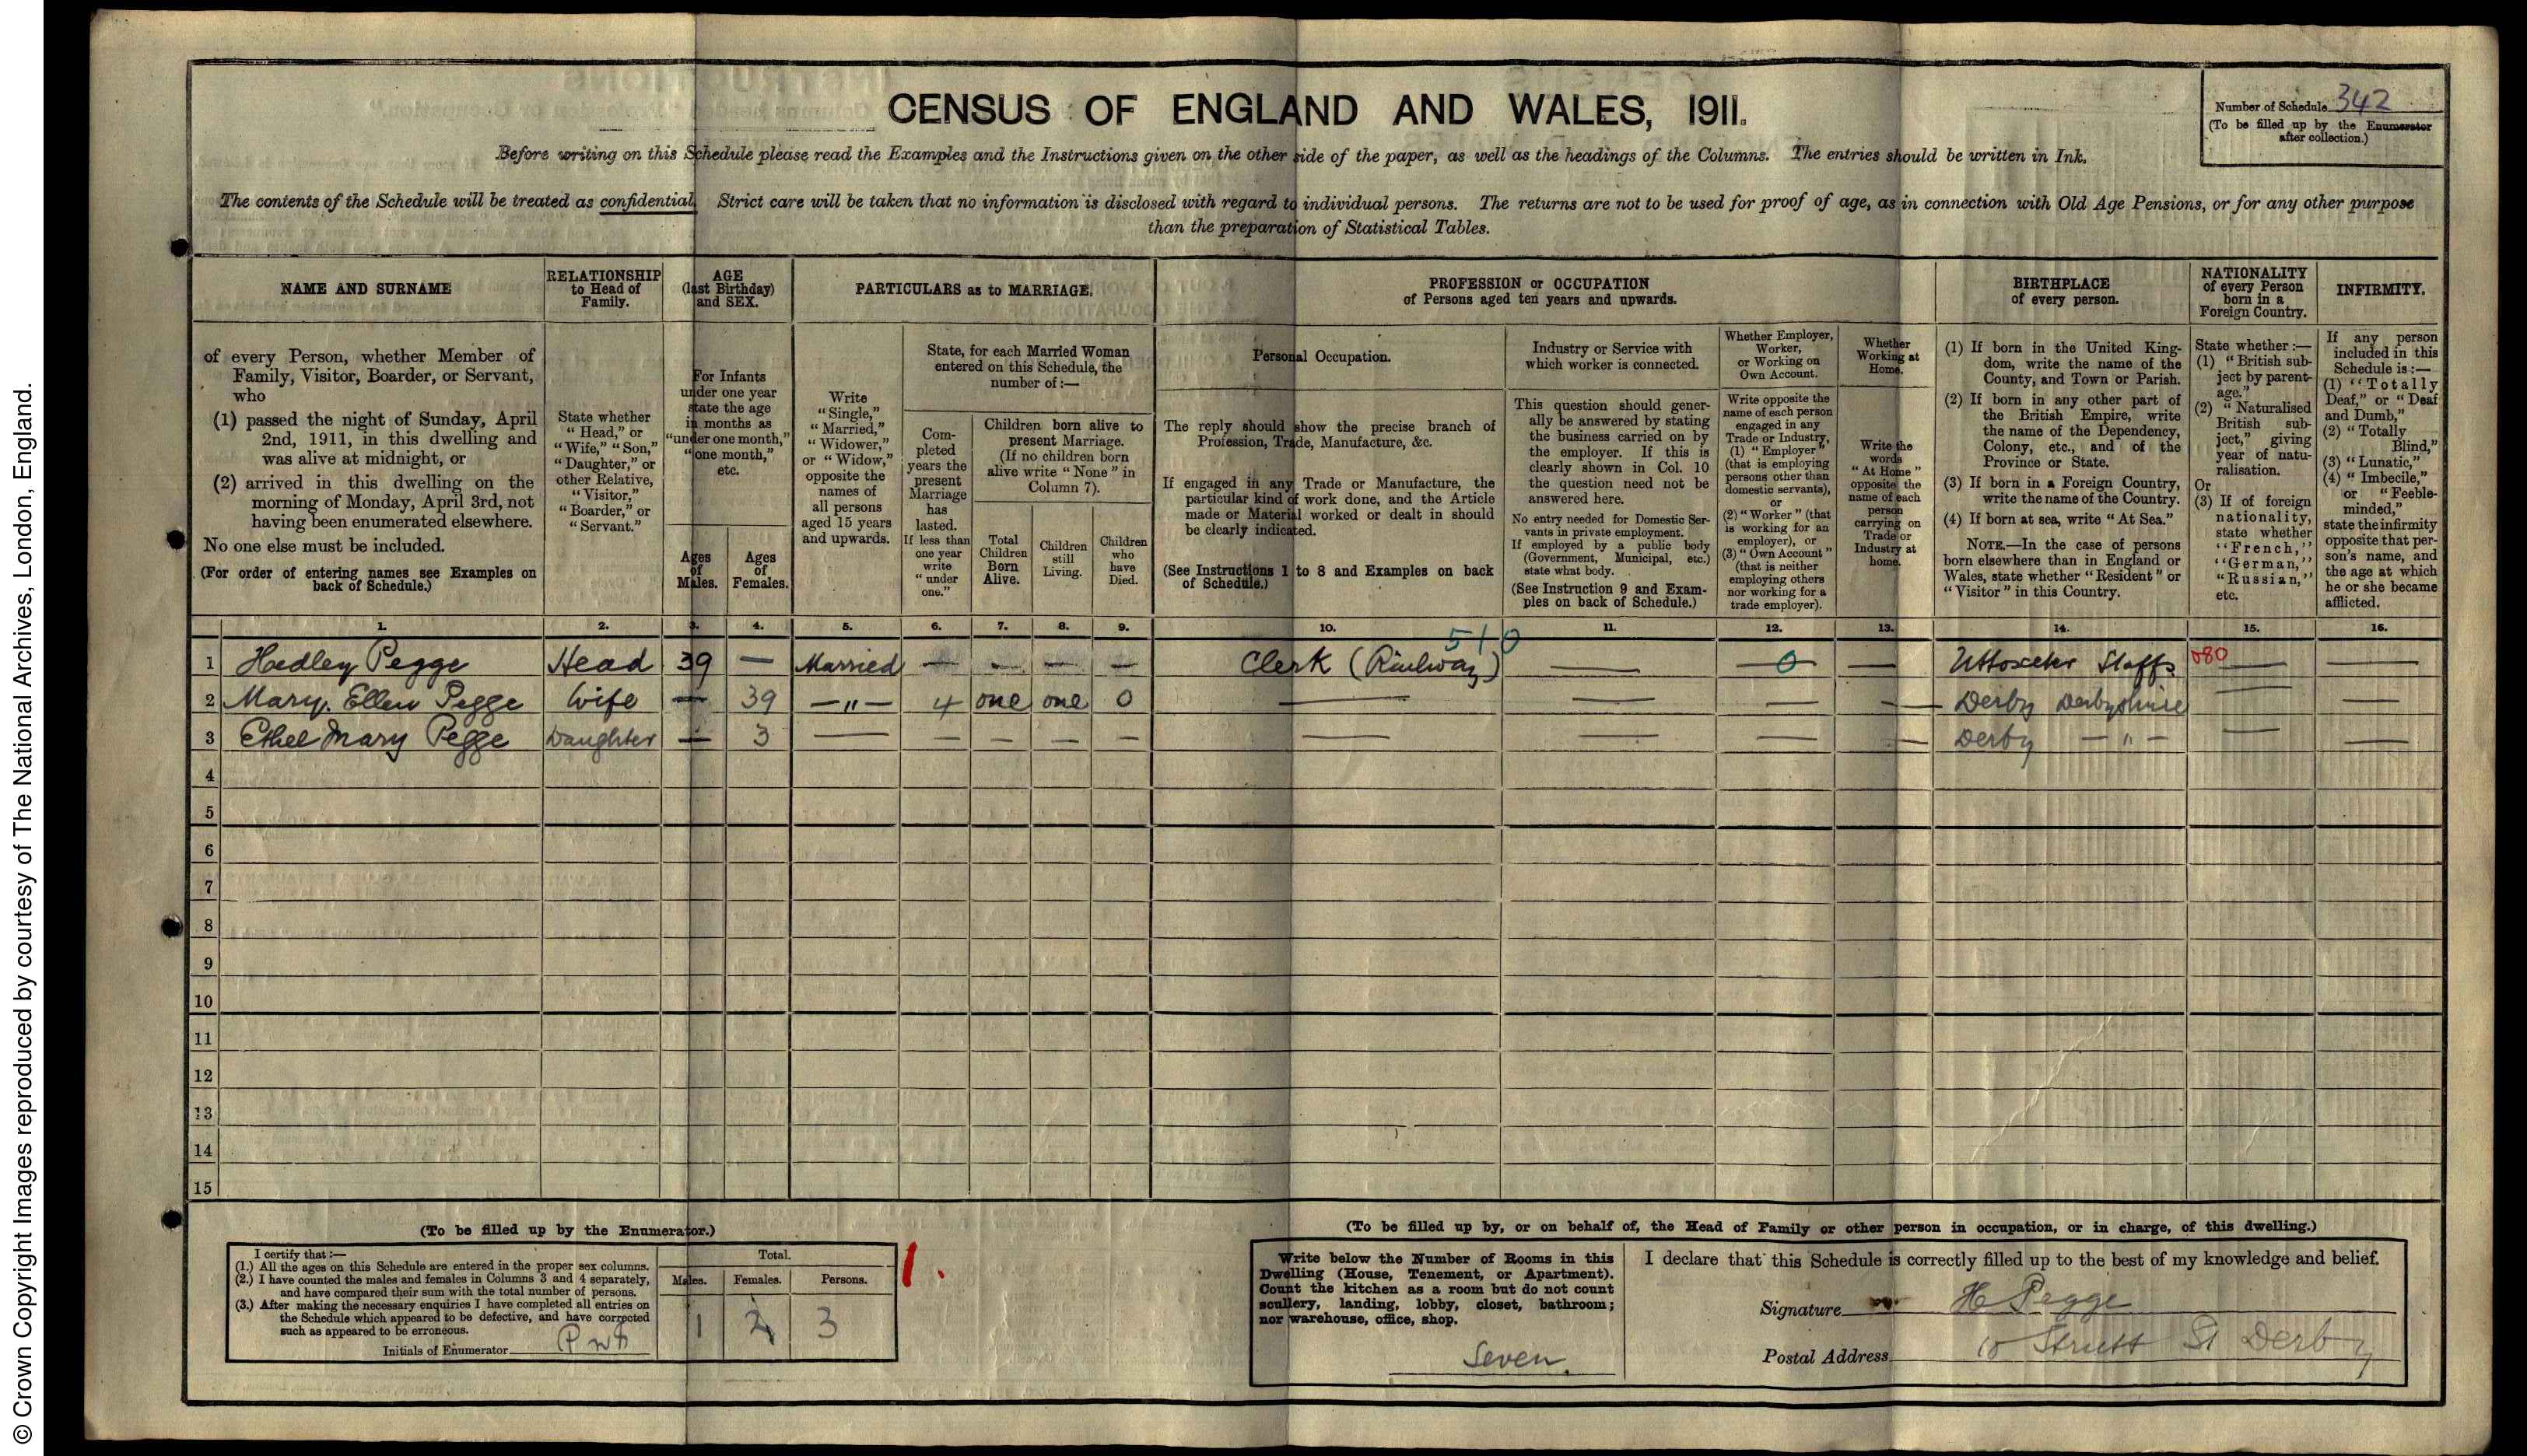 © Crown Copyright Images reproduced by courtesy of The National Archives, London, England.
CENSUS OF ENGLAND AND WALES, 1911.
Number of Schedule 342
(To be filled up by the Enumerator
after collection.)
Before writing on this Schedule please read the Examples and the Instructions given on the other side of the paper, as well as the headings of the Columns. The entries should be written in Ink.
The contents of the Schedule will be treated as confidential. Strict care will be taken that no information is disclosed with regard to individual persons. The returns are not to be used for proof of age, as in connection with Old Age Pensions, or for any other purpose
than the preparation of Statistical Tables.
NAME AND SURNAME
of every Person, whether Member of
Family, Visitor, Boarder, or Servant,
who
(1) passed the night of Sunday, April
2nd, 1911, in this dwelling and
was alive at midnight, or
(2) arrived in this dwelling on the
morning of Monday, April 3rd, not
having been enumerated elsewhere.
No one else must be included.
(For order of entering names see Examples on
back of Schedule.)
RELATIONSHIP
to Head of
Family.
State whether
"Head," or
"Wife," "Son,"
"Daughter," or
other Relative,
"Visitor,"
"Boarder," or
"Servant."
AGE
(last Birthday)
and SEX.
For Infants
under one year
state the age
in months as
"under one month,"
"one month,"
etc.
Ages
of
Males.
Ages
of
Females.
PARTICULARS as to MARRIAGE.
Write
"Single,"
"Married,"
"Widower,"
or "Widow,"
opposite the
names of
all persons
aged 15 years
and upwards.
State, for each Married Woman
entered on this Schedule, the
number of:—
Com-
pleted
years the
present
Marriage
has
lasted.
If less than
one year
write
"under
one."
Children born alive to
present Marriage.
(If no children born
alive write "None" in
Column 7).
Total
Children
Born
Alive.
Children
still
Living.
Children
who
have
Died.
PROFESSION or OCCUPATION
of Persons aged ten years and upwards.
Personal Occupation.
The reply should show the precise branch of
Profession, Trade, Manufacture, &c.
If engaged in any Trade or Manufacture, the
particular kind of work done, and the Article
made or Material worked or dealt in should
be clearly indicated.
(See Instructions 1 to 8 and Examples on back
of Schedule.)
Industry or Service with
which worker is connected.
This question should gener-
ally be answered by stating
the business carried on by
the employer. If this is
clearly shown in Col. 10
the question need not be
answered here.
No entry needed for Domestic Ser-
vants in private employment.
If employed by a public body
(Government, Municipal, etc.)
state what body.
(See Instruction 9 and Exam-
ples on back of Schedule.)
Whether Employer,
Worker,
or Working on
Own Account.
Write opposite the
name of each person
engaged in any
Trade or Industry,
(1) "Employer"
(that is employing
persons other than
domestic servants),
or
(2) "Worker" (that
is working for an
employer), or
(3) "Own Account"
(that is neither
employing others
nor working for a
trade employer).
Whether
Working at
Home.
Write the
words
"At Home"
opposite the
name of each
person
carrying on
Trade or
Industry at
home.
BIRTHPLACE
of every person.
(1) If born in the United King-
dom, write the name of the
County, and Town or Parish.
(2) If born in any other part of
the British Empire, write
the name of the Dependency,
Colony, etc., and of the
Province or State.
(3) If born in a Foreign Country,
write the name of the Country.
(4) If born at sea, write "At Sea."
NOTE.—In the case of persons
born elsewhere than in England or
Wales, state whether "Resident" or
"Visitor" in this Country.
NATIONALITY
of every Person
born in a
Foreign Country.
State whether:—
(1) "British sub-
ject by parent-
age."
(2) "Naturalised
British sub-
ject," giving
year of natu-
ralisation.
Or
(3) If of foreign
nationality,
state whether
"French,"
"German,"
"Russian,"
etc.
INFIRMITY.
If any person
included in this
Schedule is:—
(1) "Totally
Deaf," or "Deaf
and Dumb,"
(2) "Totally
Blind,"
(3) "Lunatic,"
(4) "Imbecile,"
or "Feeble-
minded,"
state the infirmity
opposite that per-
son's name, and
the age at which
he or she became
afflicted.
1. 2. 3. 4. 5. 6. 7. 8. 9. 10. 11. 12. 13. 14. 15. 16.
510
1 Hadley Pegge Head 39 — Married — — — — Clerk (Railway) — 0 — Uttoxeter Staffs 080 — —
2 Mary. Ellen Pegge Wife — 39 — " — 4 one one 0 — — — — Derby Derbyshire — —
3 Ethel Mary Pegge Daughter — 3 — — — — — — — — — Derby — " — — —
4
5
6
7
8
9
10
11
12
13
14
15
(To be filled up by the Enumerator.)
I certify that:—
(1.) All the ages on this Schedule are entered in the proper sex columns.
(2.) I have counted the males and females in Columns 3 and 4 separately,
and have compared their sum with the total number of persons.
(3.) After making the necessary enquiries I have completed all entries on
the Schedule which appeared to be defective, and have corrected
such as appeared to be erroneous.
Initials of Enumerator
Total.
Males. Females. Persons.
1 2 3
1.
(To be filled up by, or on behalf of, the Head of Family or other person in occupation, or in charge, of this dwelling.)
Write below the Number of Rooms in this
Dwelling (House, Tenement, or Apartment).
Count the kitchen as a room but do not count
scullery, landing, lobby, closet, bathroom;
nor warehouse, office, shop.
Seven.
I declare that this Schedule is correctly filled up to the best of my knowledge and belief.
Signature H Pegge
Postal Address 10 Strutt St Derby